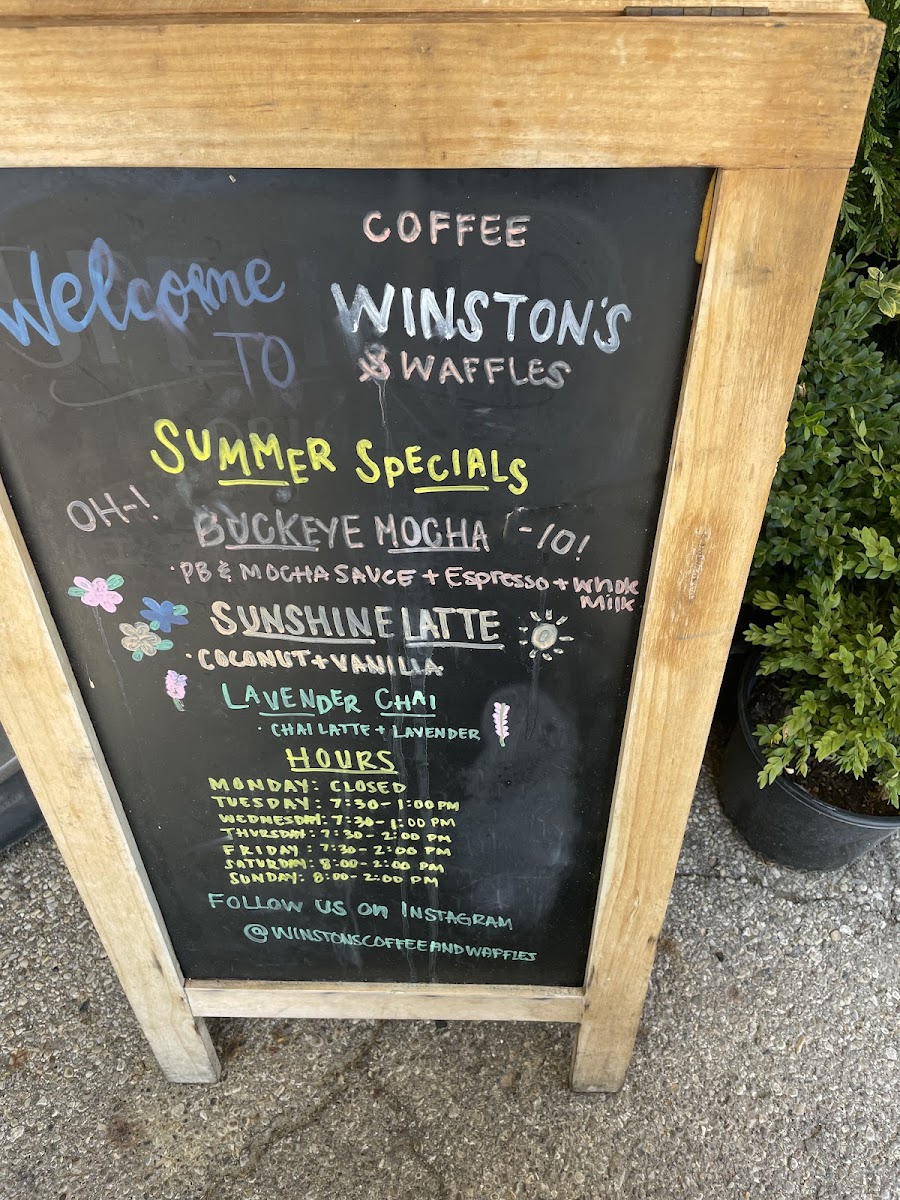 COFFEE
Welcome
TO
WINSTON'S
& WAFFLES
SUMMER SPECIALS
OH-! BUCKEYE MOCHA I-IO!
·PB & MOCHA SAUCE + Espresso + whole
Milk
SUNSHINE LATTE
·COCONUT + VANILLA
LAVENDER CHAI
· CHAI LATTE + LAVENDER
HOURS
MONDAY: CLOSED
TUESDAY: 7:30-1:00 PM
WEDNESDAY: 7:30-1:00 PM
THURSDAY: 7:30-2:00 PM
FRIDAY: 7:30-2:00 PM
SATURDAY: 8:00-2:00 PM
SUNDAY: 8:00-2:00 PM
FOLLOW US ON INSTAGRAM
@WINSTONSCOFFEEANDWAFFLES